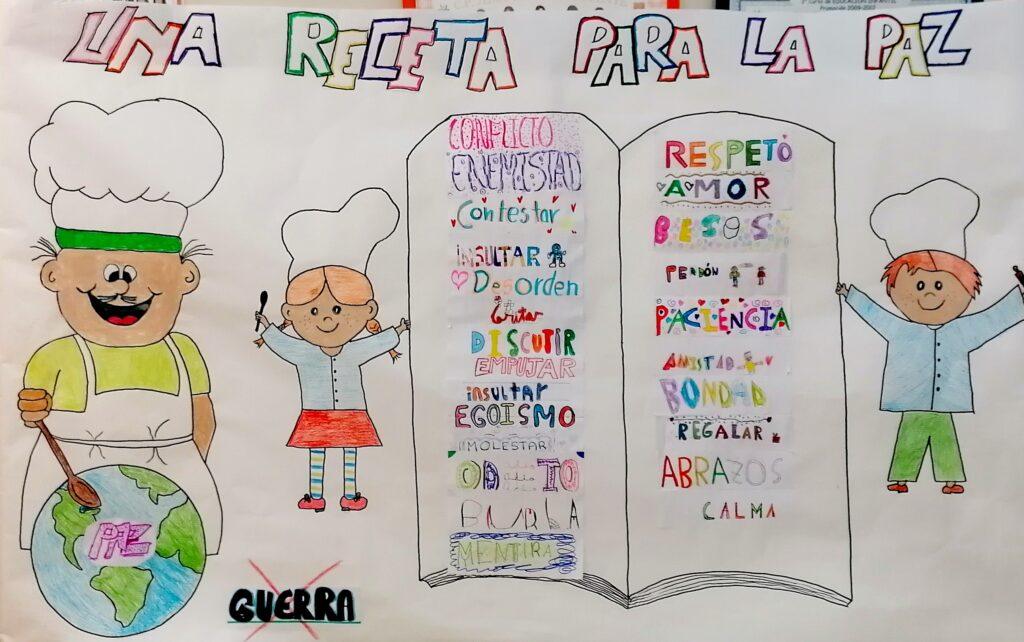 UNA RECETA PARA LA PAZ
CONFLICTO
ENEMISTAD
Contestar
INSULTAR
Desorden
DISCUTIR
EMPUJAR
insultar
EGOISMO
MOLESTAR
BURLA
MENTIRA
RESPETO
AMOR
BESOS
PERDÓN
PACIENCIA
AMISTAD
BONDAD
REGALAR
ABRAZOS
CALMA
PAZ
GUERRA